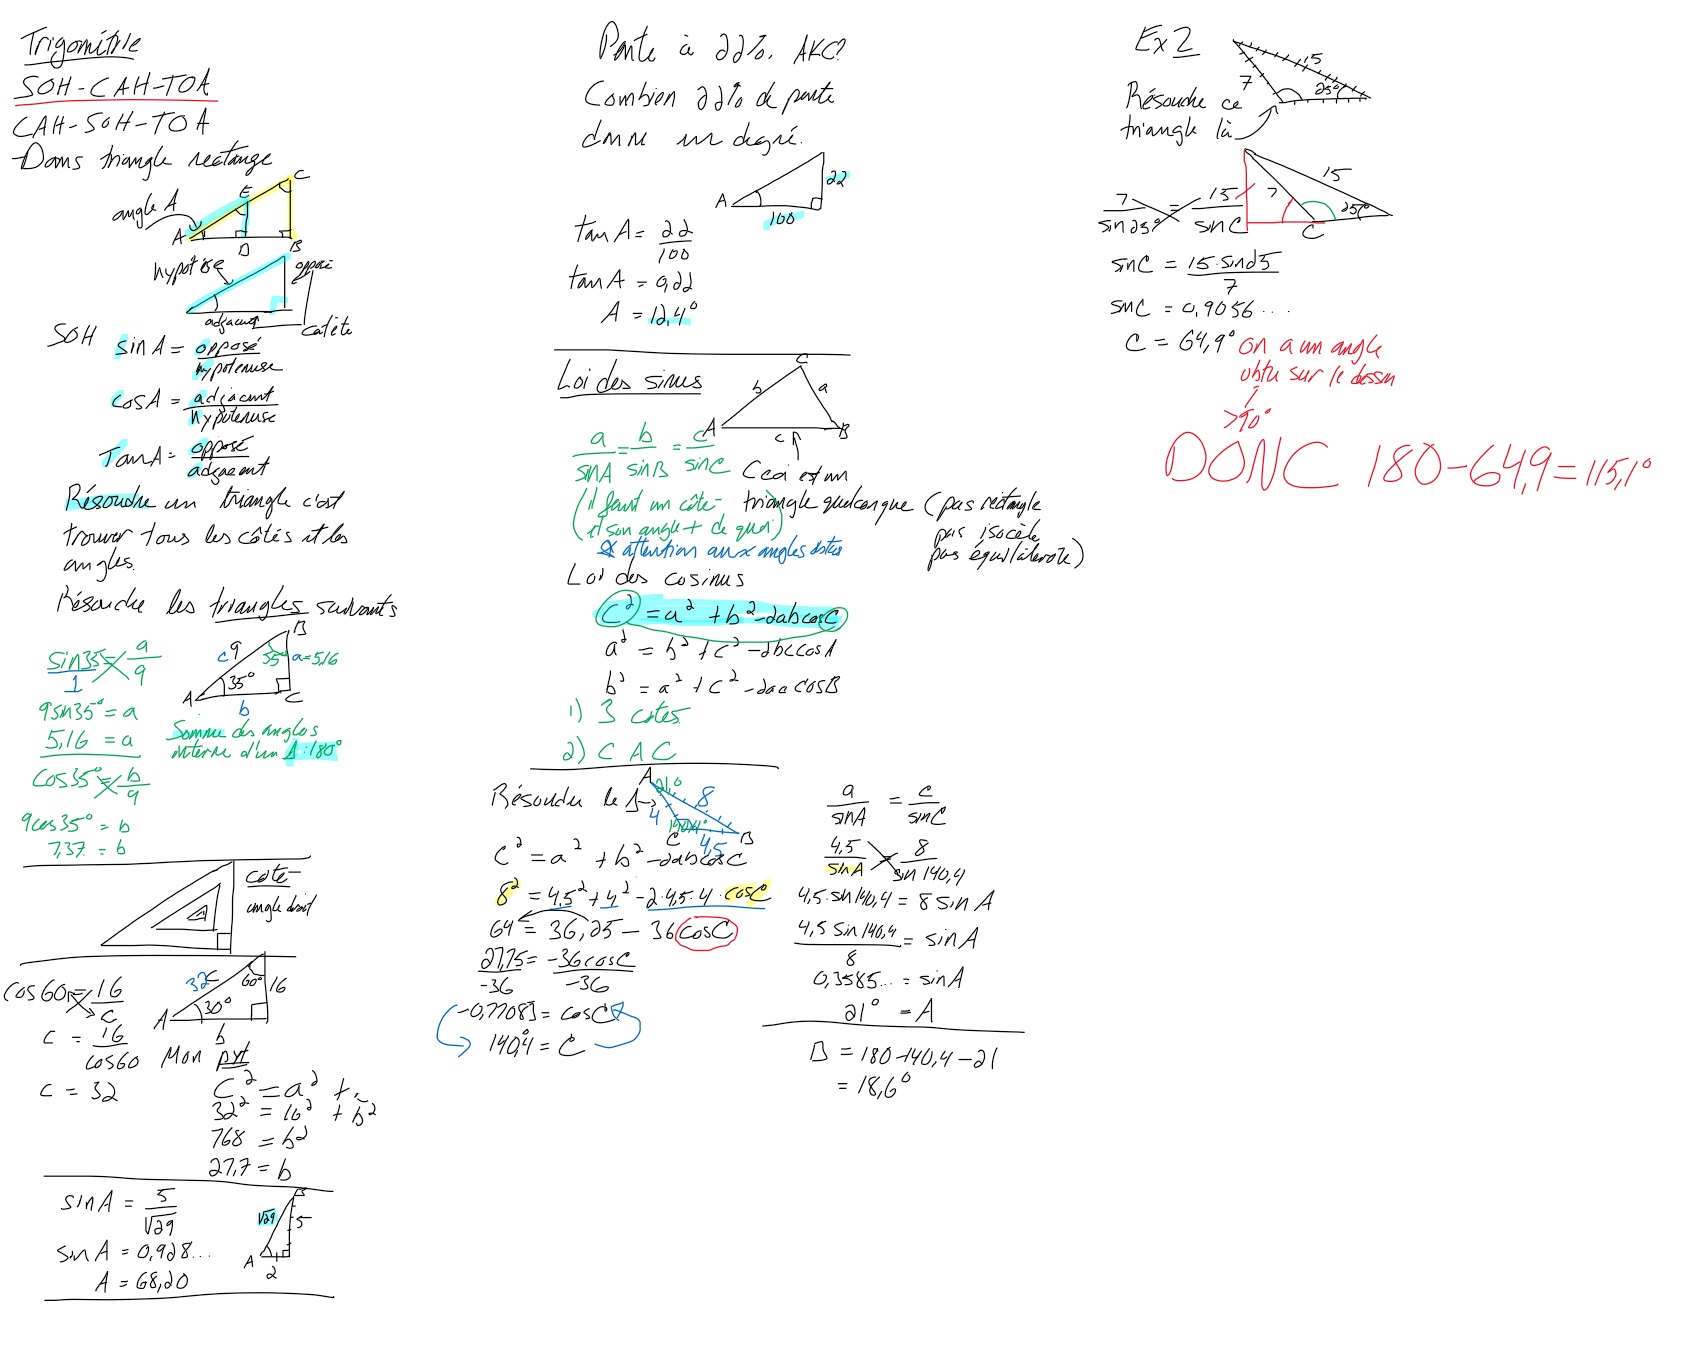 Trigomítrie
SOH-CAH-TOA
CAH-SOH-TOA
Dans triangle rectange
angle A
C
E
A
D
B
hypotise
opposé
adjacent
catète
SOH
sin A = opposé / hypotenuse
cos A = adjacent / hypotenuse
Tan A = opposé / adjacent
Résoudre un triangle c'est
trouver tous les côtés et les
angles.
Résoudre les triangles suivants
sin35° = a / 9
1
9sin35° = a
5,16 = a
cos35° = b / 9
9cos35° = b
7,37 = b
B
c 9
55°
a = 5,16
35°
A
C
b
Somme des angles
interne d'un Δ : 180°
coté
angle droit
cos60 = 16 / c
c = 16 / cos60
c = 32
32 c
60°
16
30°
A
b
Mon pyt
C² = a² +
32² = 16² + b²
768 = b²
27,7 = b
sin A = 5 / √29
sin A = 0,928...
A = 68,20
B
√29
5
A
2
Pente à 22%. AKC?
Combien 22% de pente
donne en degré.
A
22
100
tan A = 22 / 100
tan A = 0,22
A = 12,4°
Loi des sinus
C
b
a
A
c
B
a / sinA = b / sinB = c / sinC
Ceci est un
triangle quelconque (pas rectangle
pas isocèle
pas équilaterale)
(il faut un côté
et son angle + de quoi)
* attention aux angles obtus
Loi des cosinus
c² = a² + b² - 2abcosC
a² = b² + c² - 2bccosA
b² = a² + c² - 2accosB
1) 3 cotés
2) C A C
Résoudre le Δ→
A
21°
8
4
140,4°
C
4,5
B
c² = a² + b² - 2abcosC
8² = 4,5² + 4² - 2·4,5·4·cosC
64 = 36,25 - 36cosC
27,75 / -36 = -36cosC / -36
-0,77083 = cosC
140,4° = C
a / sinA = c / sinC
4,5 / sinA = 8 / sin140,4
4,5·sin140,4 = 8 sin A
4,5 sin140,4 / 8 = sin A
0,3585... = sin A
21° = A
B = 180-140,4-21
= 18,6°
Ex 2
15
7
25°
Résoudre ce
triangle là
15
7
25°
C
7 / sin25° = 15 / sinC
sinC = 15·sin25 / 7
sinC = 0,9056...
C = 64,9°
on a un angle
obtu sur le dessin
>90°
DONC 180-64,9=115,1°